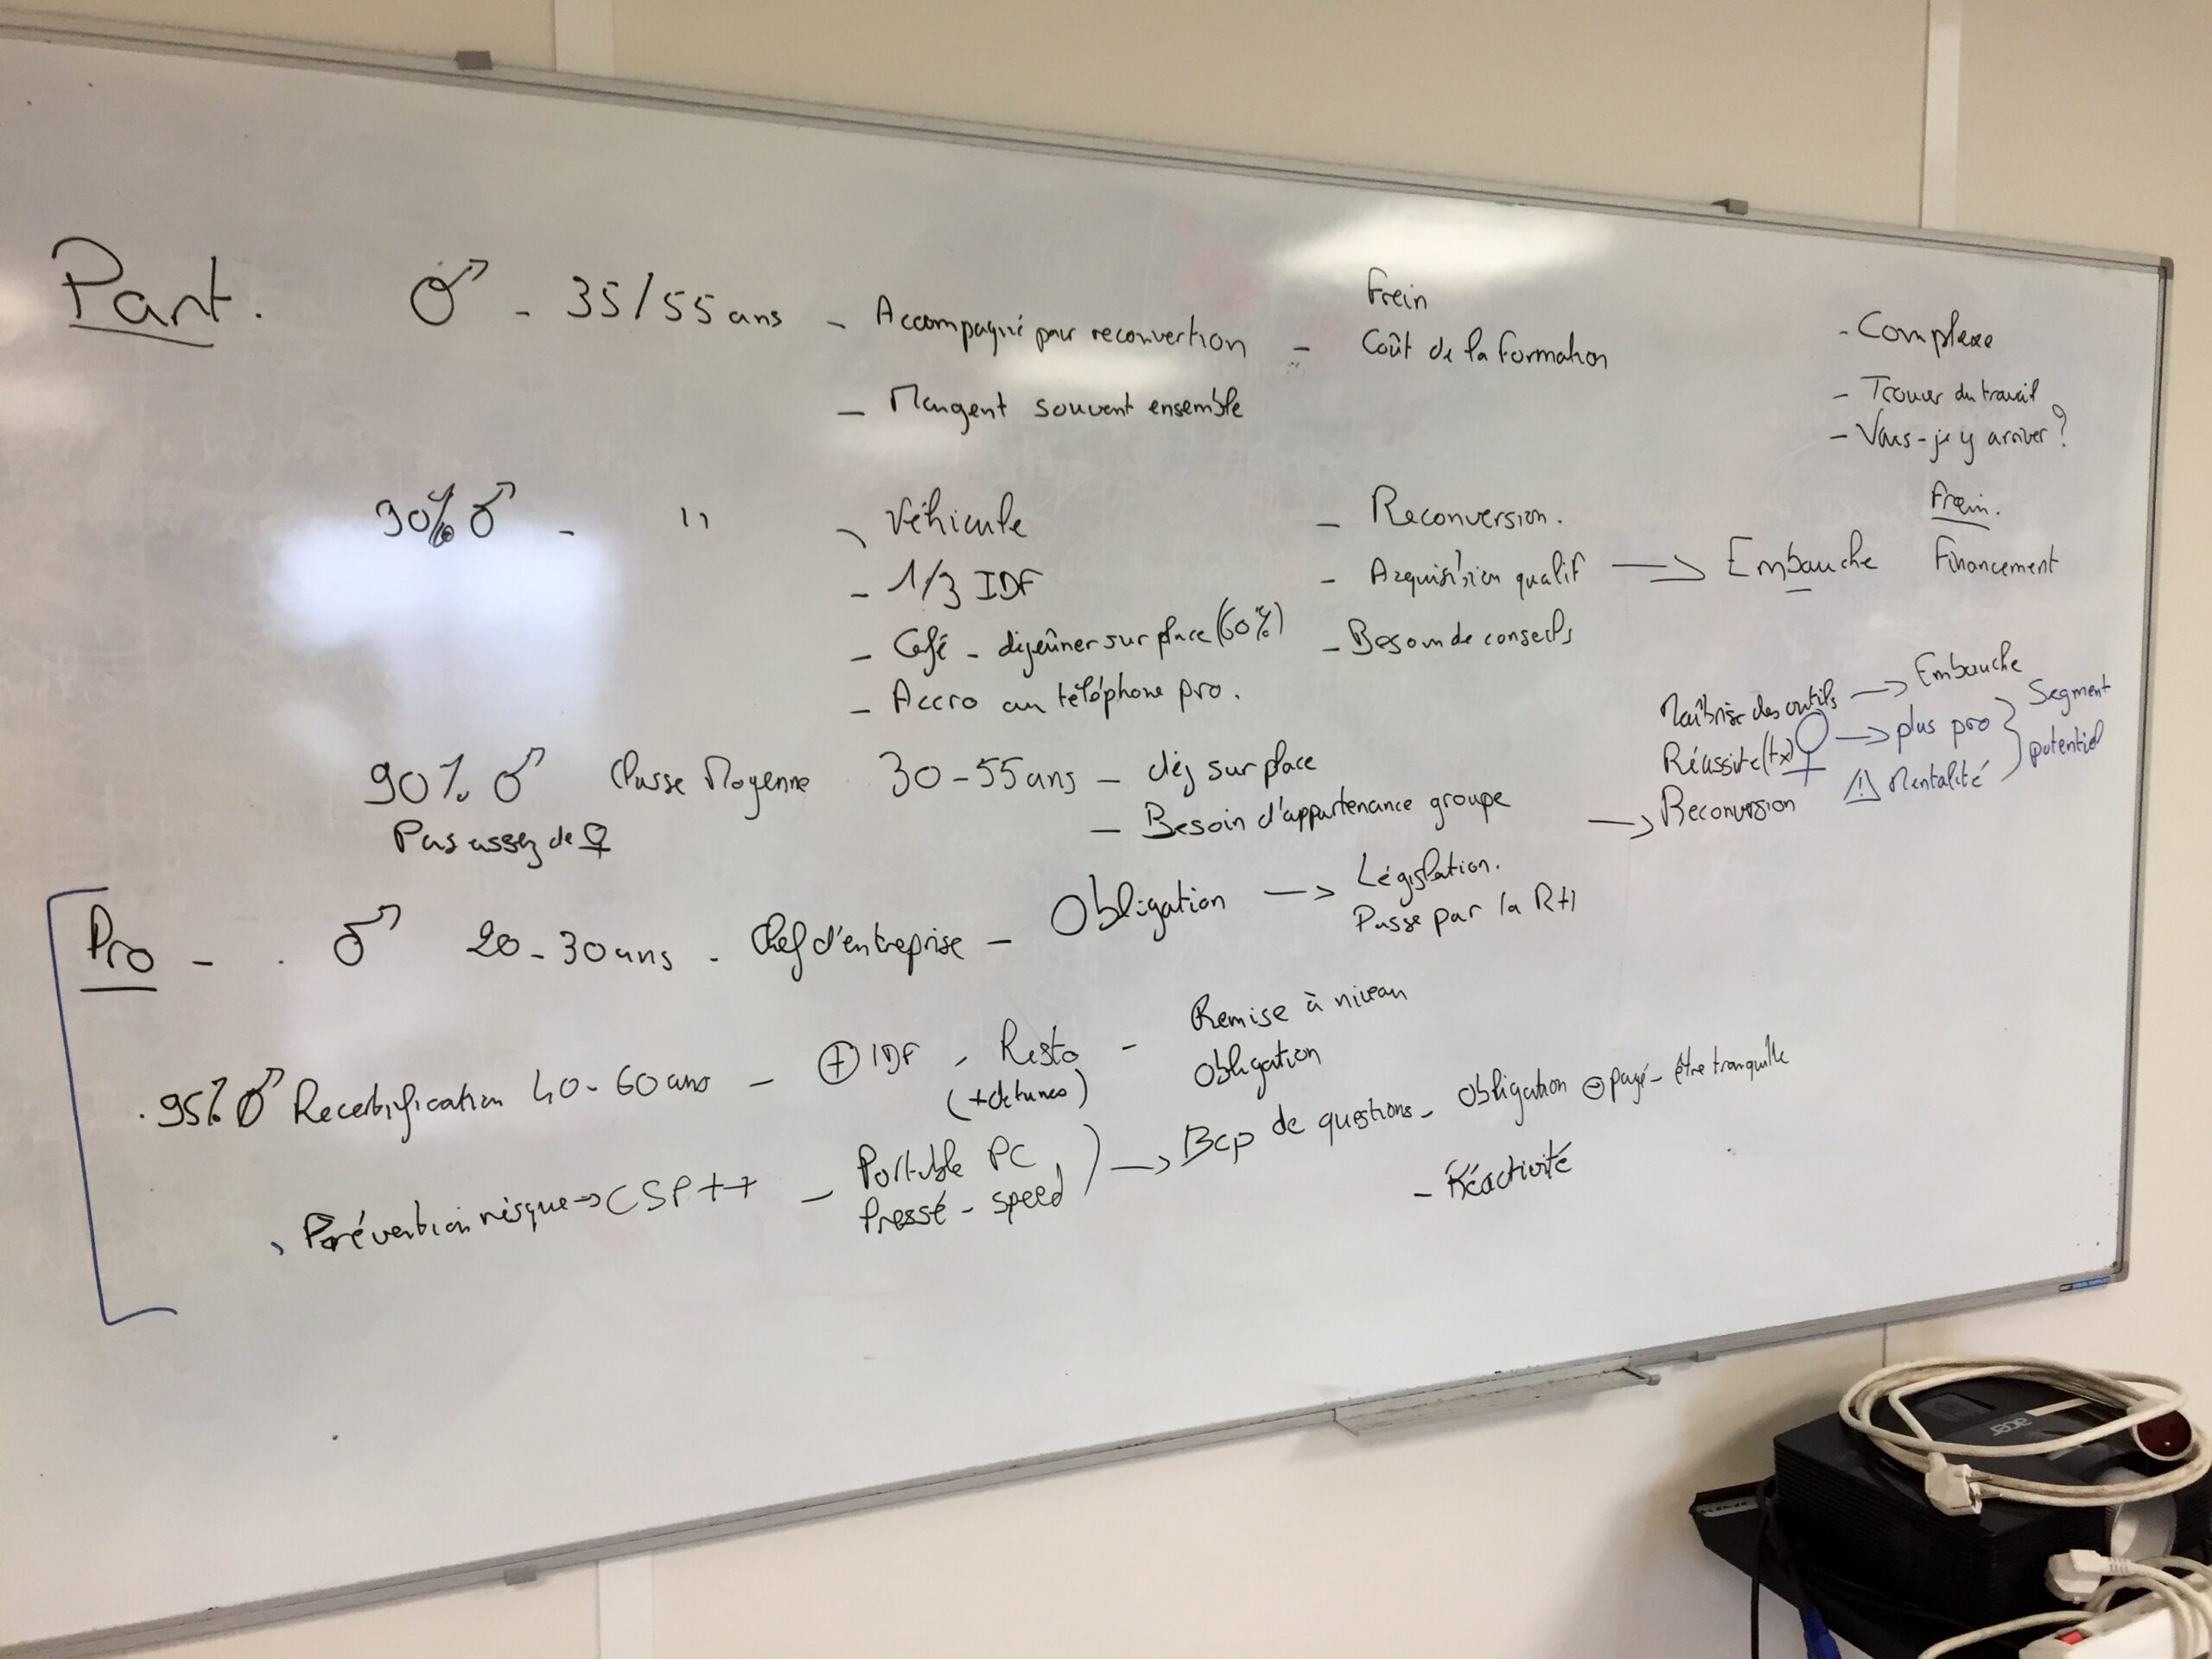 Part. ♂ - 35/55 ans - Accompagné pour reconvertion - Frein
Coût de la formation
- Complexe
- Mangent souvent ensemble
- Trouver du travail
- Vais-je y arriver ?
90% ♂ - " - Véhicule
- 1/3 IDF
- Café - déjeûner sur place (60%)
- Accro au téléphone pro.
- Reconversion.
- Acquisition qualif → Embauche
- Besoin de conseils
Frein.
Financement
90% ♂ Classe Moyenne 30-55 ans - déj sur place
Pas assez de ♀
- Besoin d'appartenance groupe
Maîtrise des outils → Embauche
Réussite (tx)
→ Reconversion
♀ → plus pro } Segment
⚠ Mentalité } potentiel
Pro - . ♂ 20-30 ans - Chef d'entreprise - Obligation → Législation.
Passe par la RH
. 95% ♂ Recertification 40-60 ans - ⊕ IDF - Resto -
(+ de tunes)
Remise à niveau
Obligation
Prévention risque → CSP++ - Portable PC
Pressé - speed ) → Bcp de questions - Obligation ⊖ payé - être tranquille
- Réactivité
acer